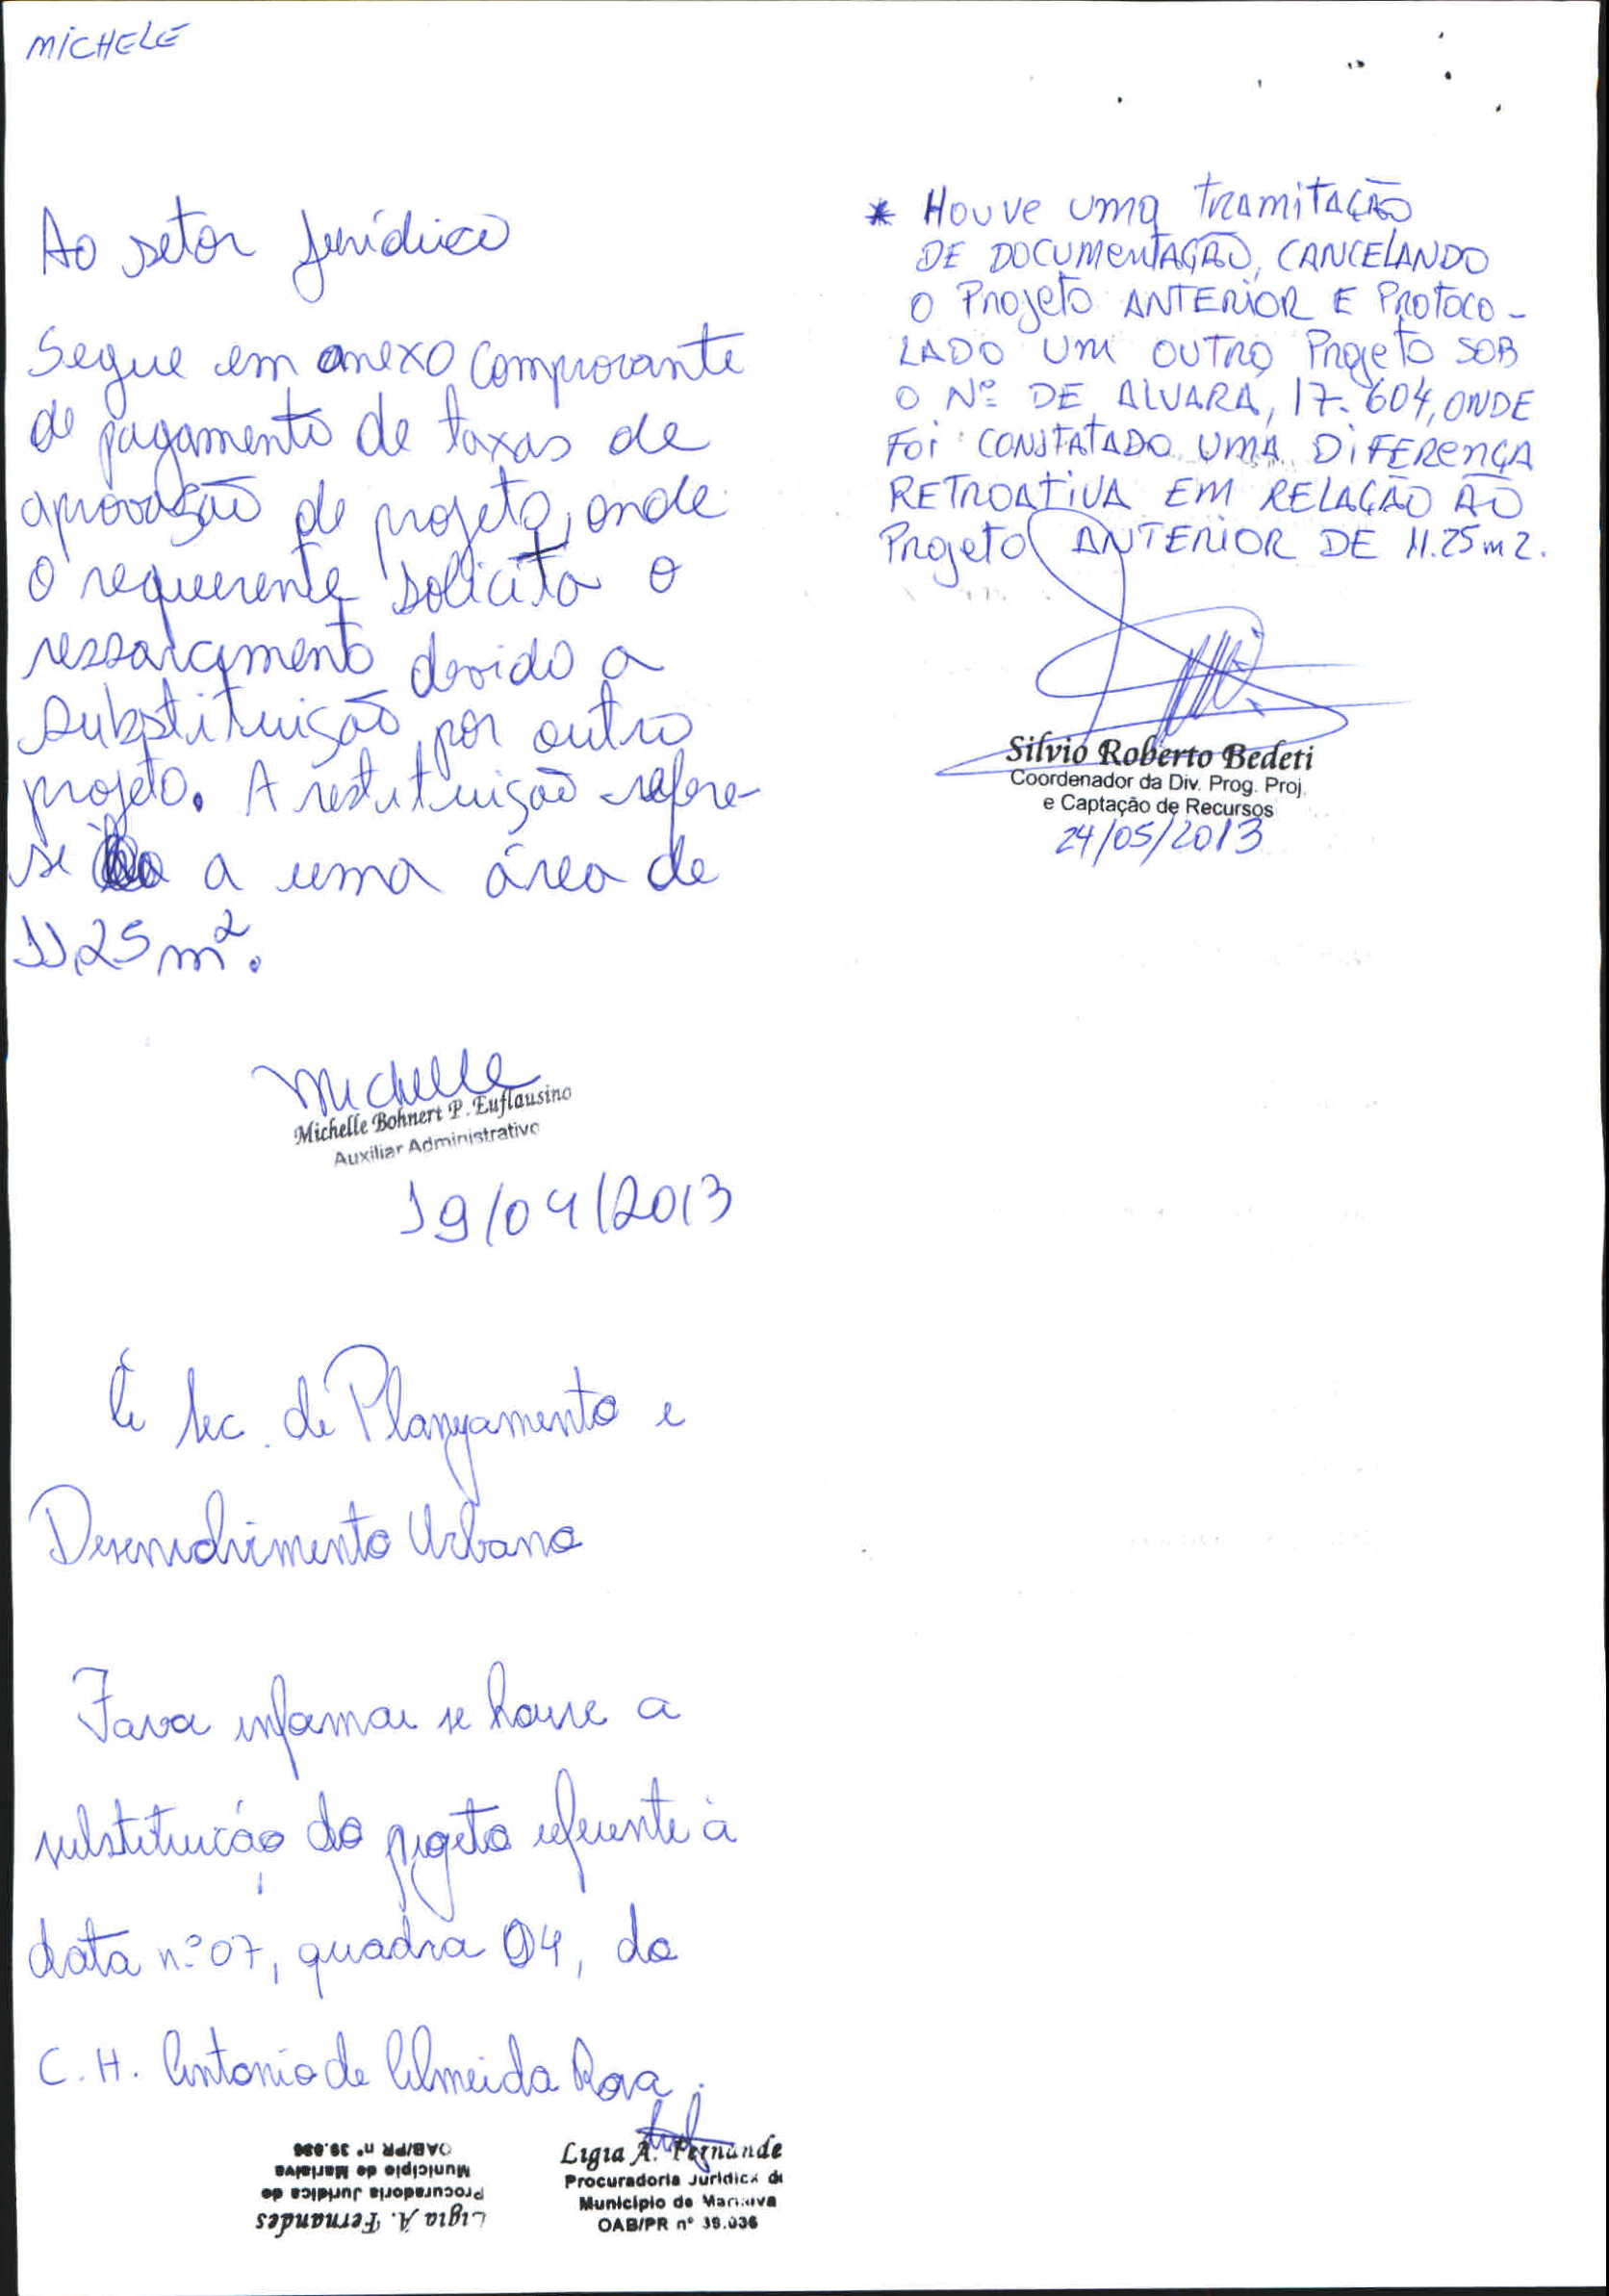 MiCHELE
Ao setor Jurídico
Segue em anexo comprovante
de pagamento de taxas de
aprovação de projeto, onde
O requerente solicita o
ressarcimento devido a
substituição por outro
projeto. A restituição refere-
se a uma área de
11,25 m².
Michelle
Michelle Bohnert P. Euflausino
Auxiliar Administrativo
19/04/2013
À Sec. de Planejamento e
Desenvolvimento Urbano
Favor informar se houve a
substituição do projeto referente à
data nº 07, quadra 04, do
C. H. Antonio de Almeida Rosa.
Ligia A. Fernandes
Procuradoria Juridica de
Municipio de Marialva
OAB/PR nº 39.036
Ligia A. Fernande
Procuradoria Juridica de
Municipio de Marialva
OAB/PR nº 39.036
* HOUVE UMA TRAMITAÇÃO
DE DOCUMENTAÇÃO, CANCELANDO
O PROJETO ANTERIOR E PROTOCO-
LADO UM OUTRO PROJETO SOB
O Nº DE ALVARÁ, 17.604, ONDE
FOI CONSTATADO UMA DIFERENÇA
RETROATIVA EM RELAÇÃO AO
PROJETO ANTERIOR DE 11.25 m2.
Silvio Roberto Bedeti
Coordenador da Div. Prog. Proj.
e Captação de Recursos
24/05/2013